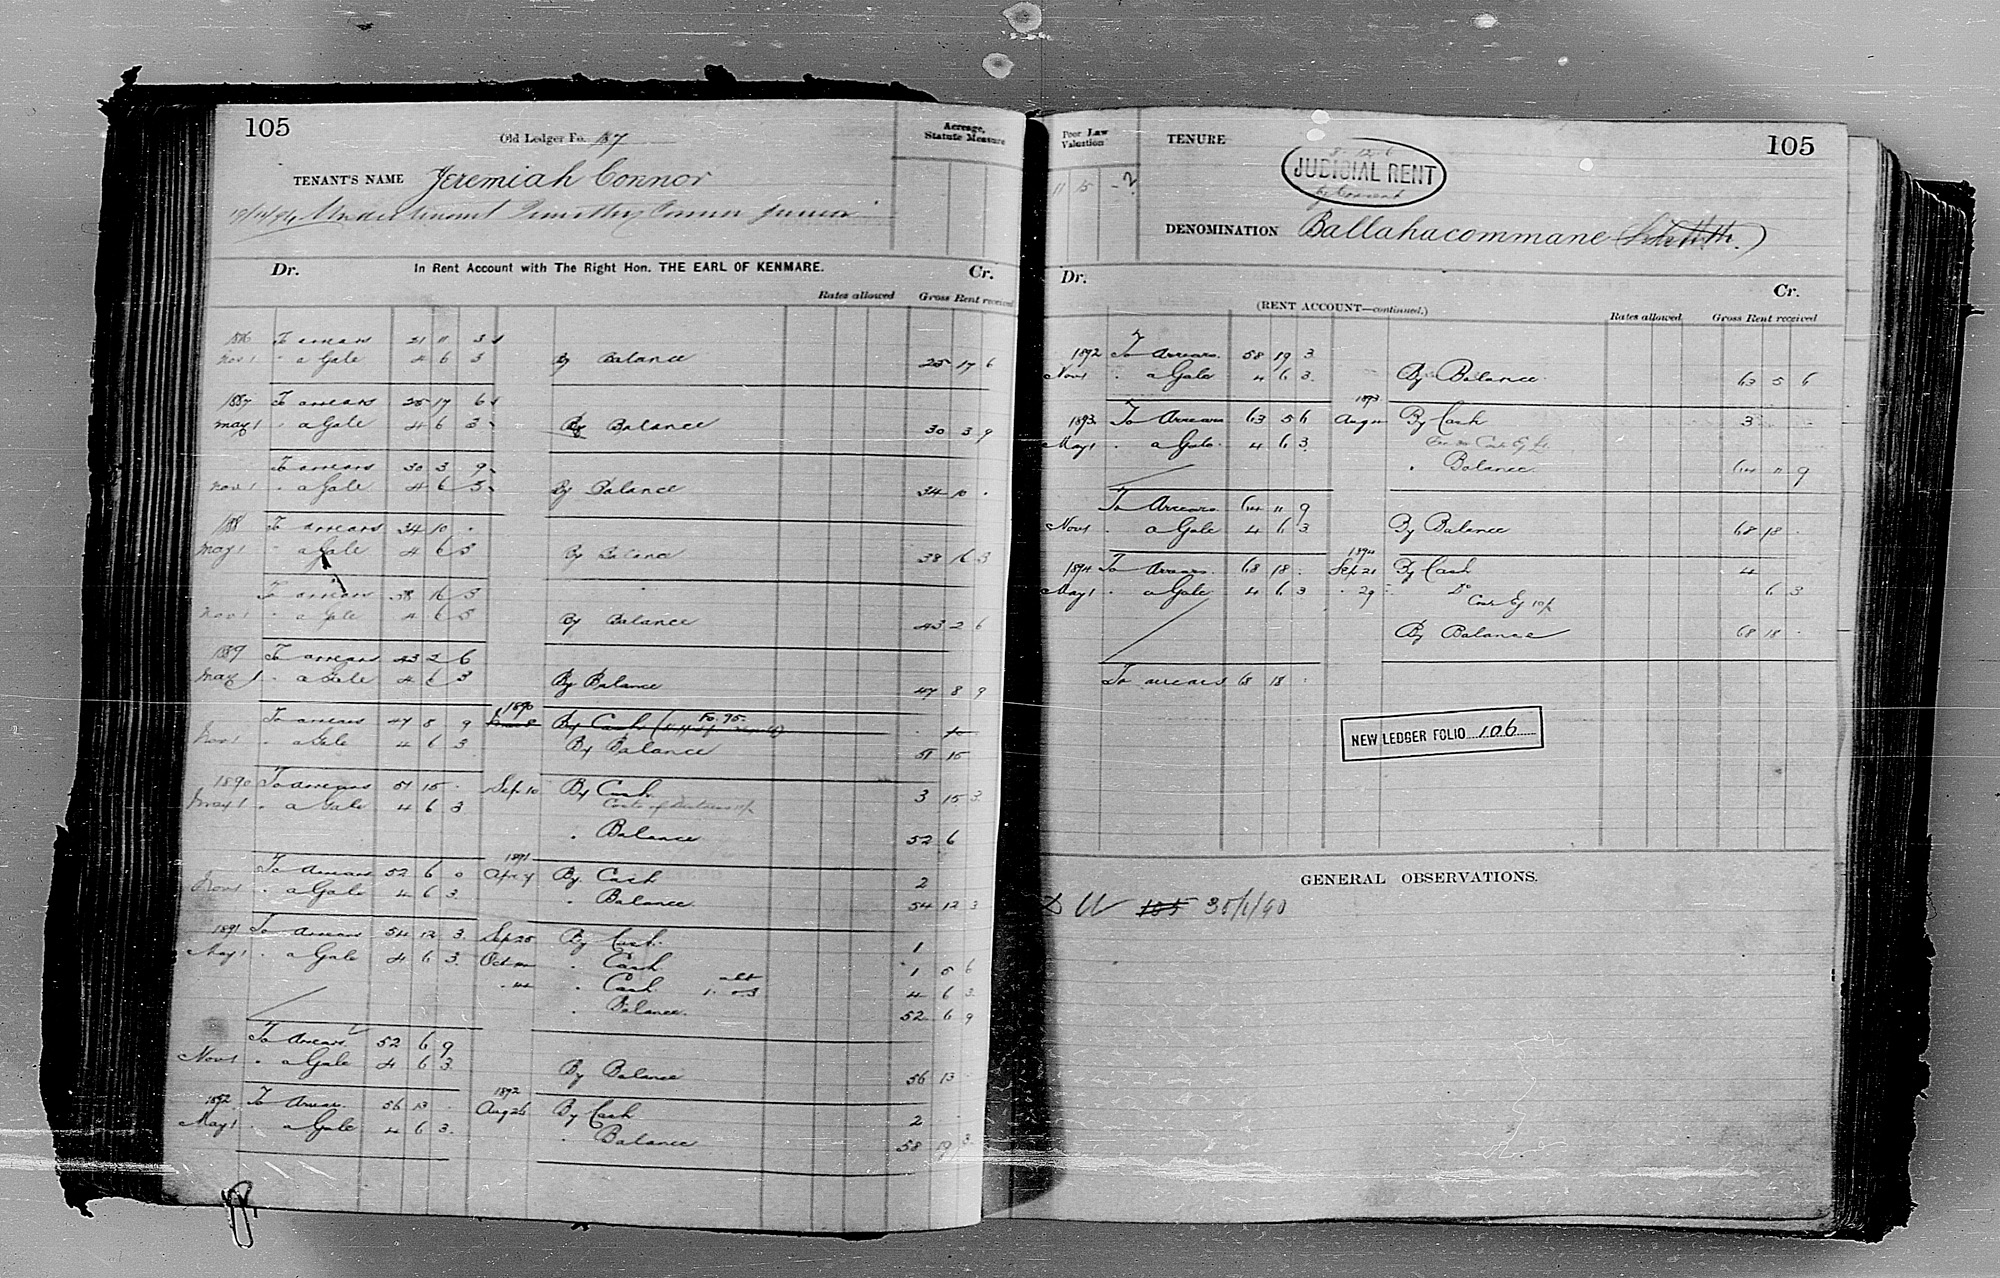 105
Old Ledger Fo. 137
Acreage, Statute Measure
TENANT'S NAME Jeremiah Connor
Undertenant Timothy Connor Junior
Dr. In Rent Account with The Right Hon. THE EARL OF KENMARE. Cr.
Rates allowed Gross Rent received
To arrears 21 11 3
Nov 1 " a Gale 4 6 3 By Balance 25 17 6
1887 To arrears 25 17 6
May 1 " a Gale 4 6 3 By Balance 30 3 9
To arrears 30 3 9
Nov 1 " a Gale 4 6 3 By Balance 34 10 "
1888 To arrears 34 10 "
May 1 " a Gale 4 6 3 By Balance 38 16 3
To arrears 38 16 3
Nov 1 " a Gale 4 6 3 By Balance 43 2 6
1889 To arrears 43 2 6
May 1 " a Gale 4 6 3 By Balance 47 8 9
To arrears 47 8 9 1890 By Cash Fo. 95
Nov 1 " a Gale 4 6 3 By Balance 51 15
1890 To arrears 51 15 " Sep 10 By Cash 3 15 3
May 1 " a Gale 4 6 3 Costs of
" Balance 52 6
To Arrears 52 6 0 1891 Apr 4 By Cash 2
Nov 1 " a Gale 4 6 3 " Balance 54 12 3
1891 To Arrears 54 12 3 Sep 25 By Cash 1
May 1 " a Gale 4 6 3 Oct " Cash 1 5 6
" Cash 4 6 3
" Balance 52 6 9
To Arrears 52 6 9
Nov 1 " a Gale 4 6 3 By Balance 56 13
1892 To Arrears 56 13 " 1892 Aug 26 By Cash 2
May 1 " a Gale 4 6 3 " Balance 58 19 3
Poor Law Valuation
TENURE
105
11 15 -
JUDICIAL RENT
by Consent
DENOMINATION Ballahacommane
Dr. Cr.
(RENT ACCOUNT—continued.)
Rates allowed Gross Rent received
1892 To Arrears 58 19 3
Nov 1 " a Gale 4 6 3 By Balance 63 5 6
1893 To Arrears 63 5 6 1893 Aug By Cash 3
May 1 " a Gale 4 6 3
" Balance 64 11 9
To Arrears 64 11 9
Nov 1 " a Gale 4 6 3 By Balance 68 18
1894 To Arrears 68 18 " 1894 Sep 21 By Cash 4
May 1 " a Gale 4 6 3 " 29 Do 6 3
By Balance 68 18
To arrears 68 18
NEW LEDGER FOLIO 106
GENERAL OBSERVATIONS.
105